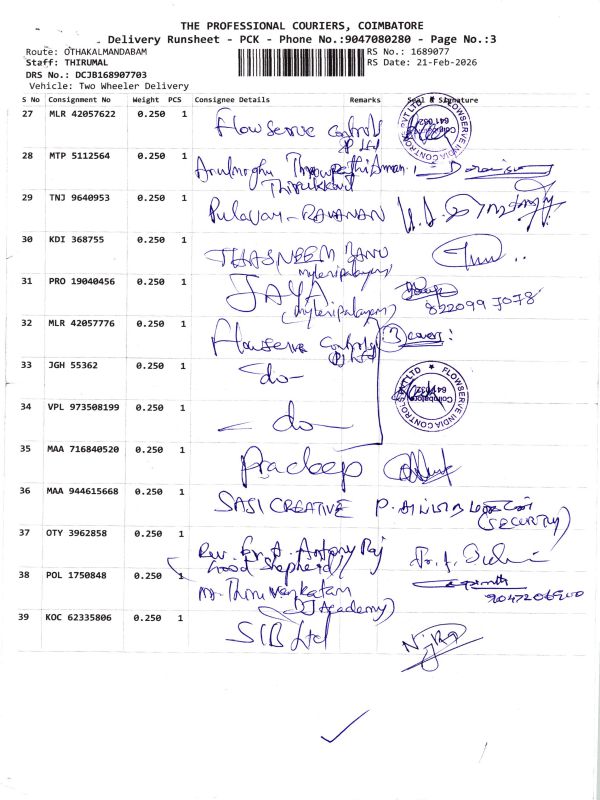 THE PROFESSIONAL COURIERS, COIMBATORE
Delivery Runsheet - PCK - Phone No.:9047080280 - Page No.:3
Route: OTHAKALMANDABAM
RS No.: 1689077
Staff: THIRUMAL
RS Date: 21-Feb-2026
DRS No.: DCJB168907703
Vehicle: Two Wheeler Delivery
S No Consignment No Weight PCS Consignee Details Remarks Seal & Signature
27 MLR 42057622 0.250 1 Flowserve Controls P Ltd
28 MTP 5112564 0.250 1
29 TNJ 9640953 0.250 1 Pulavar - RAVANAN
30 KDI 368755 0.250 1 THASNEEM BANU
31 PRO 19040456 0.250 1 JAYA
822099 7078
32 MLR 42057776 0.250 1 Flowserve Controls P Ltd
3 covers
33 JGH 55362 0.250 1 - do -
FLOWSERVE INDIA CONTROLS PVT LTD
Coimbatore
34 VPL 973508199 0.250 1 - do -
35 MAA 716840520 0.250 1 Pradeep
36 MAA 944615668 0.250 1 SASI CREATIVE
(SECURITY)
37 OTY 3962858 0.250 1 Rev. Fr. Antony Raj
(Good Shepherd)
38 POL 1750848 0.250 1 Thiruvenkatam
(DJ Academy)
39 KOC 62335806 0.250 1 SIB Ltd